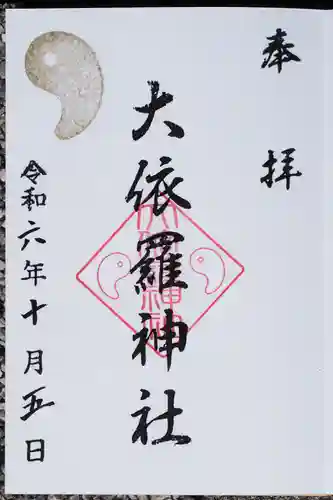 奉拝
大依羅神社
令和六年十月五日